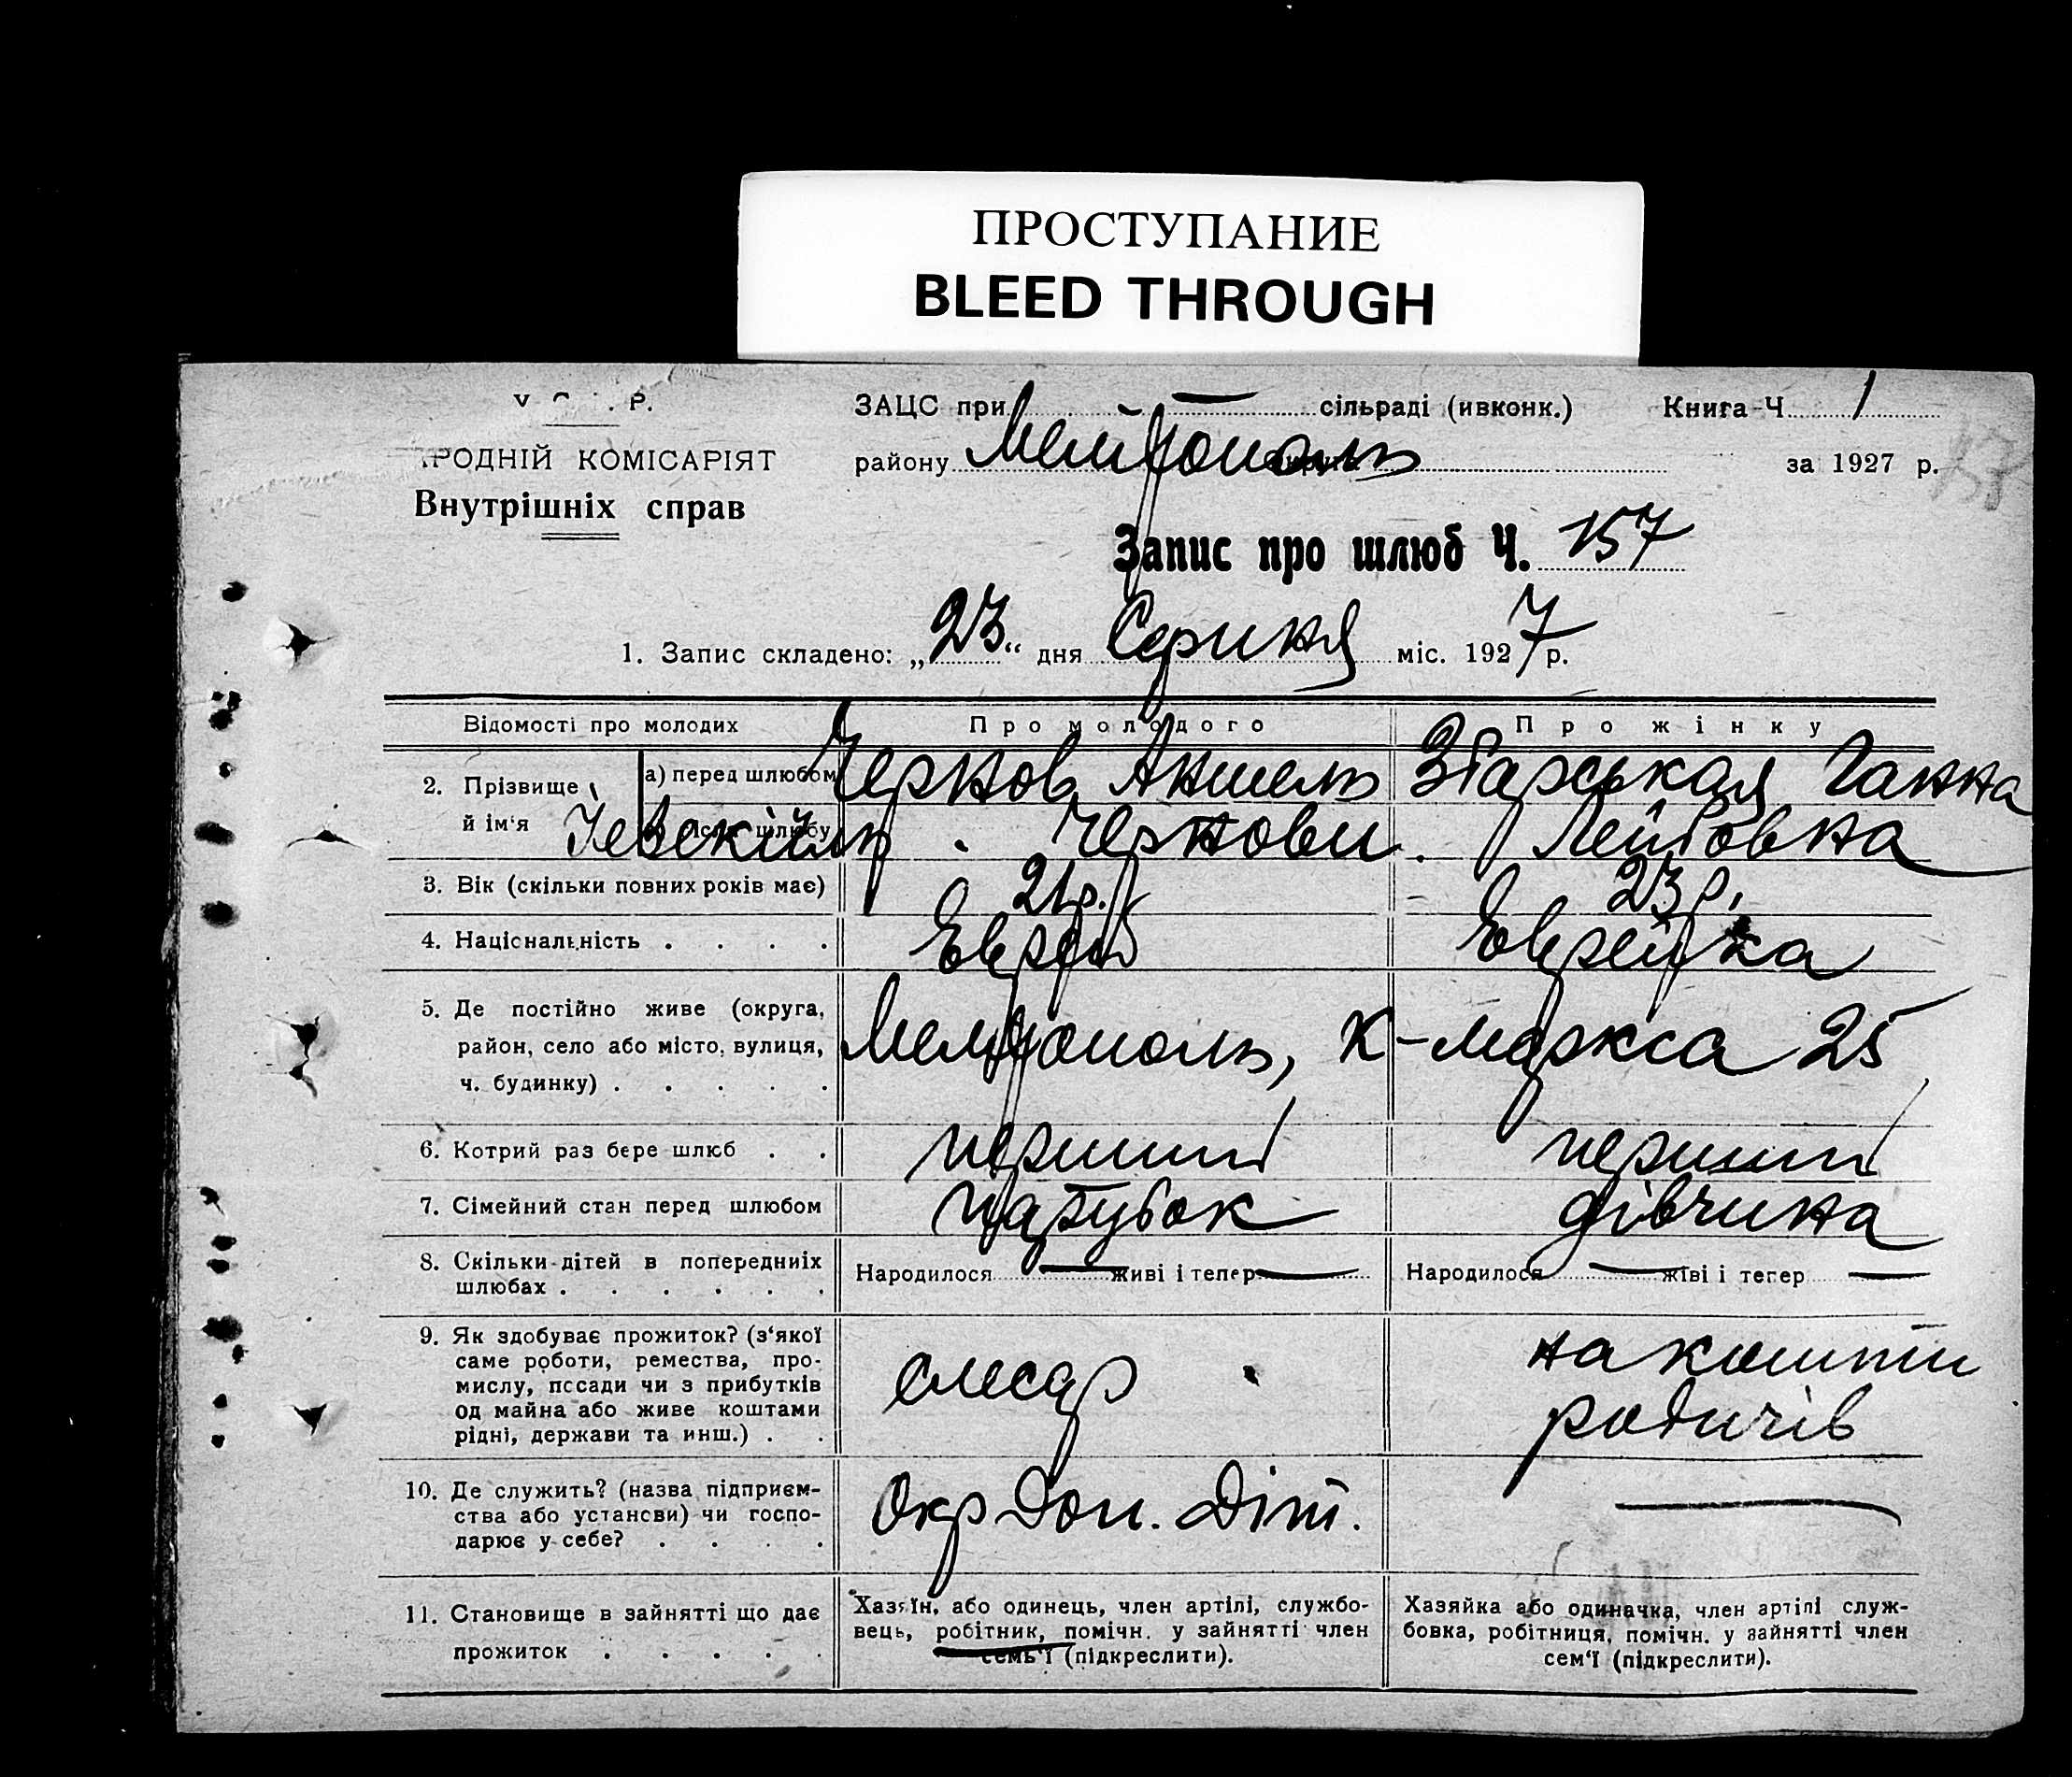 ПРОСТУПАНИЕ
BLEED THROUGH
ЗАЦС при — сільраді (ивконк.) Книга Ч 1
району Мелітополь за 1927 р.
РОДНІЙ КОМІСАРІЯТ
Внутрішніх справ
Запис про шлюб Ч. 157
1. Запис складено: „23“ дня Серпня міс. 1927 р.
Відомості про молодих Про молодого Про жінку
2. Прізвище й ім‘я
а) перед шлюбом Чернов Аншель Згарськая Ганна
шлюбу Чернови. Лейбовна
3. Вік (скільки повних років має) 21 р. 23 р.
4. Національність . . . . Еврей Еврейка
5. Де постійно живе (округа,
район, село або місто, вулиця,
ч. будинку) . . . . . Мелітополь, К-Маркса 25
6. Котрий раз бере шлюб . . перший перший
7. Сімейний стан перед шлюбом парубок дівчина
8. Скільки дітей в попередніх
шлюбах . . . . . . Народилося — живі і тепер — Народилося — живі і тепер —
9. Як здобуває прожиток? (з‘якої
саме роботи, ремества, про-
мислу, посади чи з прибутків
од майна або живе коштами
рідні, держави та инш.) . . слесар на кошти
родичів
10. Де служить? (назва підприєм-
ства або установи) чи госпо-
дарює у себе? . . . . Окр Доп. Діт. —
11. Становище в зайнятті що дає
прожиток . . . . .
Хазяїн, або одинець, член артілі, службо-
вець, робітник, помічн. у зайнятті член
семь‘ї (підкреслити).
Хазяйка або одиначка, член артілі служ-
бовка, робітниця, помічн. у зайнятті член
сем‘ї (підкреслити).